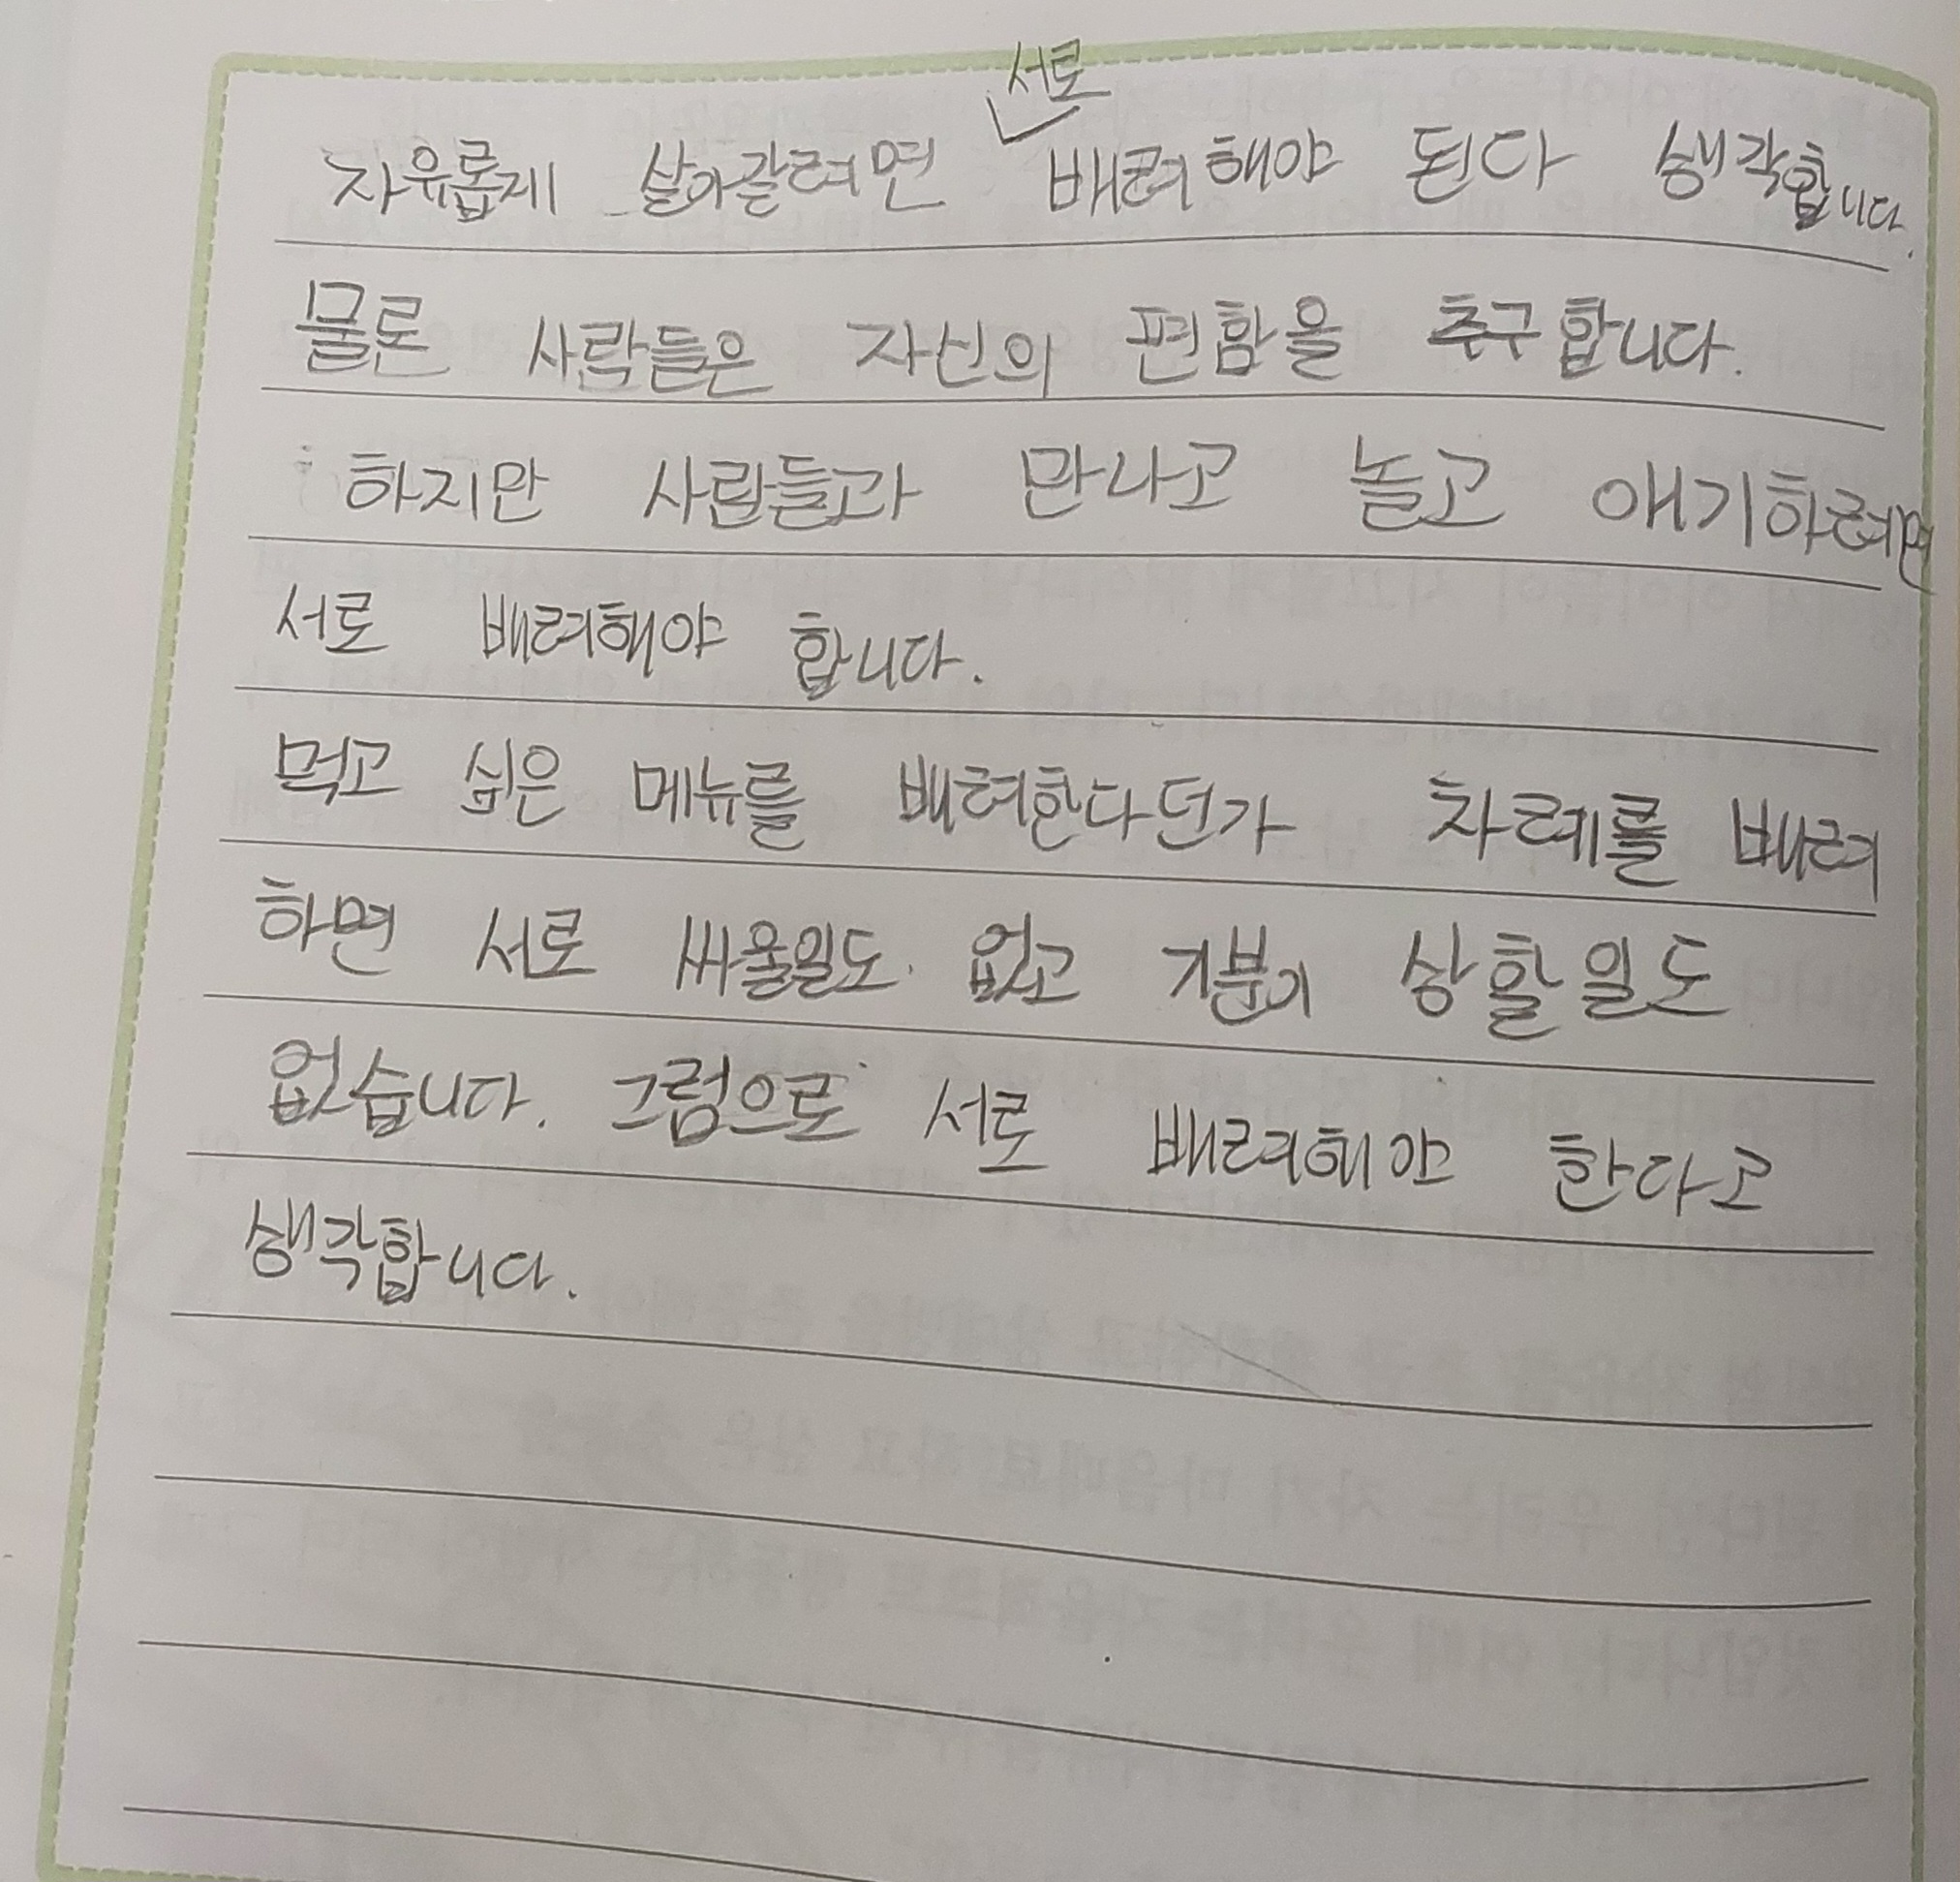 자유롭게 살아갈려면 서로 배려해야 된다 생각합니다.
물론 사람들은 자신의 편함을 추구합니다.
하지만 사람들과 만나고 놀고 얘기하려면
서로 배려해야 합니다.
먹고 싶은 메뉴를 배려한다던가 차례를 배려
하면 서로 싸울일도 없고 기분이 상할일도
없습니다. 그럼으로 서로 배려해야 한다고
생각합니다.